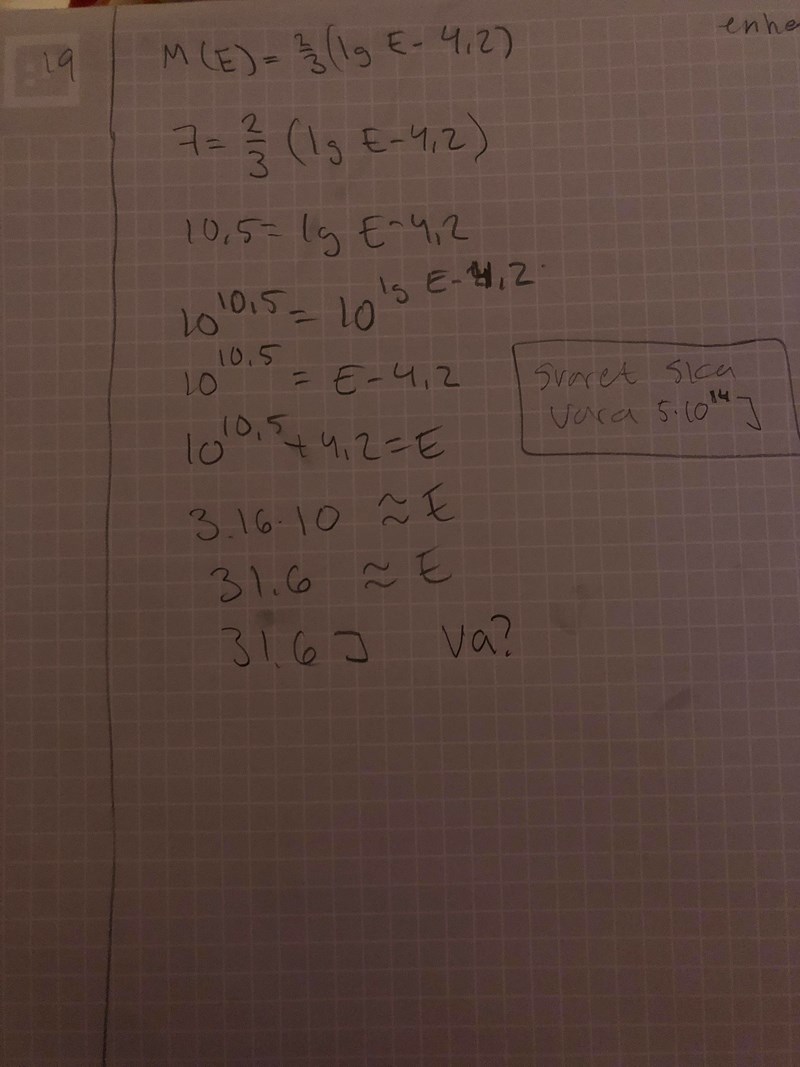 enhe
19
M(E) = 2/3 (lg E - 4,2)
7 = 2/3 (lg E - 4,2)
10,5 = lg E - 4,2
10^10,5 = 10^lg E - 4,2
10^10,5 = E - 4,2
Svaret ska
vara 5·10^14 J
10^10,5 + 4,2 = E
3.16·10 ≈ E
31.6 ≈ E
31.6 J va?